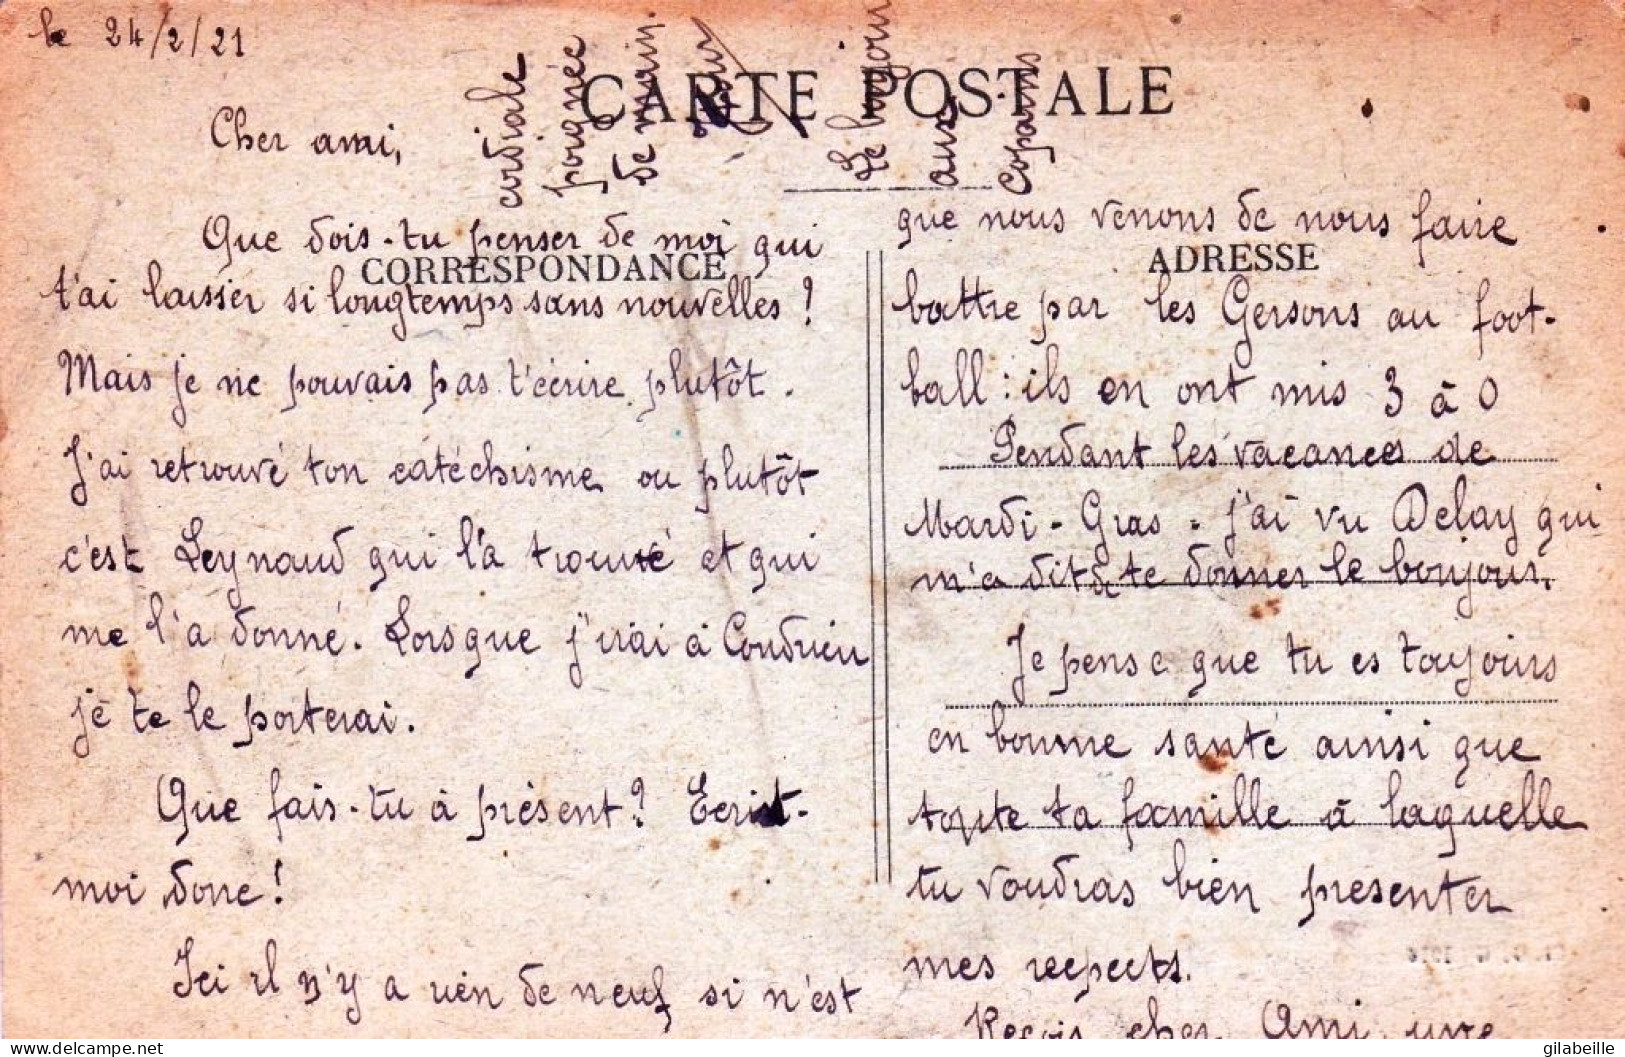 le 24/2/21
CARTE POSTALE
Cher ami,
CORRESPONDANCE
Que dois-tu penser de moi qui
t'ai laisser si longtemps sans nouvelles ?
Mais je ne pouvais pas t'écrire plutôt.
J'ai retrouvé ton catéchisme ou plutôt
c'est Leynaud qui l'a trouvé et qui
me l'a donné. Lorsque j'irai à Condrieu
je te le porterai.
Que fais-tu à présent ? Ecrit-
moi donc !
Ici il n'y a rien de neuf si n'est
ADRESSE
que nous venons de nous faire
battre par les Gersons au foot-
ball : ils en ont mis 3 à 0
Pendant les vacances de
Mardi-Gras - j'ai vu Delay qui
m'a dit de te donner le bonjour.
Je pense que tu es toujours
en bonne santé ainsi que
toute ta famille à laquelle
tu voudras bien presenter
mes respects.
Reçois cher Ami une
cordiale
poignée
de main
Le bonjour
aux
copains
gilabeille